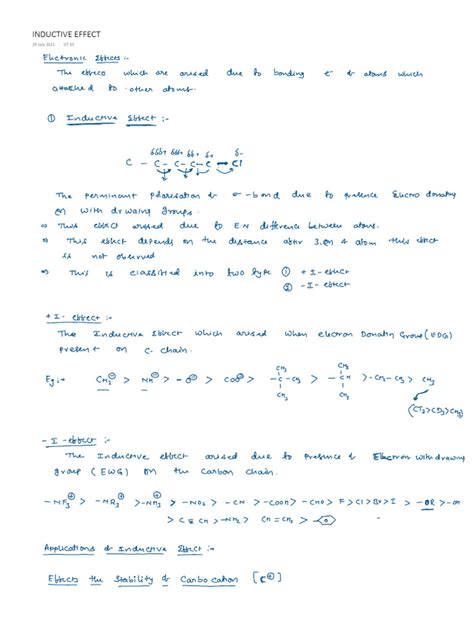 INDUCTIVE EFFECT
Electronic Effects :-
The effects which are arised due to bonding e⁻ & atoms which
attached to other atoms.
① Inductive Effect :-
δδδ+ δδ+ δ+ δ-
C - C - C - C - C → Cl
The perminant polarisation of σ-bond due to presence Electro donating
or withdrwaing groups.
⇒ This effect arised due to E·N difference between atoms.
⇒ This effect depends on the distance after 3 or 4 atom this effect
is not observed
⇒ This is classified into two type ① + I - effect
② - I - effect
+ I - effect :-
The Inductive Effect which arised when electron Donatin Group (EDG)
present on C- chain.
Eg :- CH₂⊖ > NH⊖ > - O⊖ > COO⊖ > - C(CH₃)(CH₃) - CH₃ > - CH(CH₃) - CH₃ > - CH₂ - CH₃ > CH₃
(CT₃ > CD₃ > CH₃)
- I - effect :-
The Inductive effect arised due to Presence of Electron withdrawing
group (EWG) on the Carbon chain.
- NF₃⊕ > - NR₃⊕ > - NH₃⊕ > - NO₂ > - CN > - COOH > - CHO > F > Cl > Br > I > - OR > - OH
> C ≡ CH > - NH₂ > CH = CH₂ >
Applications of Inductive Effect :-
Effects the Stability of Carbocation [C⊕]